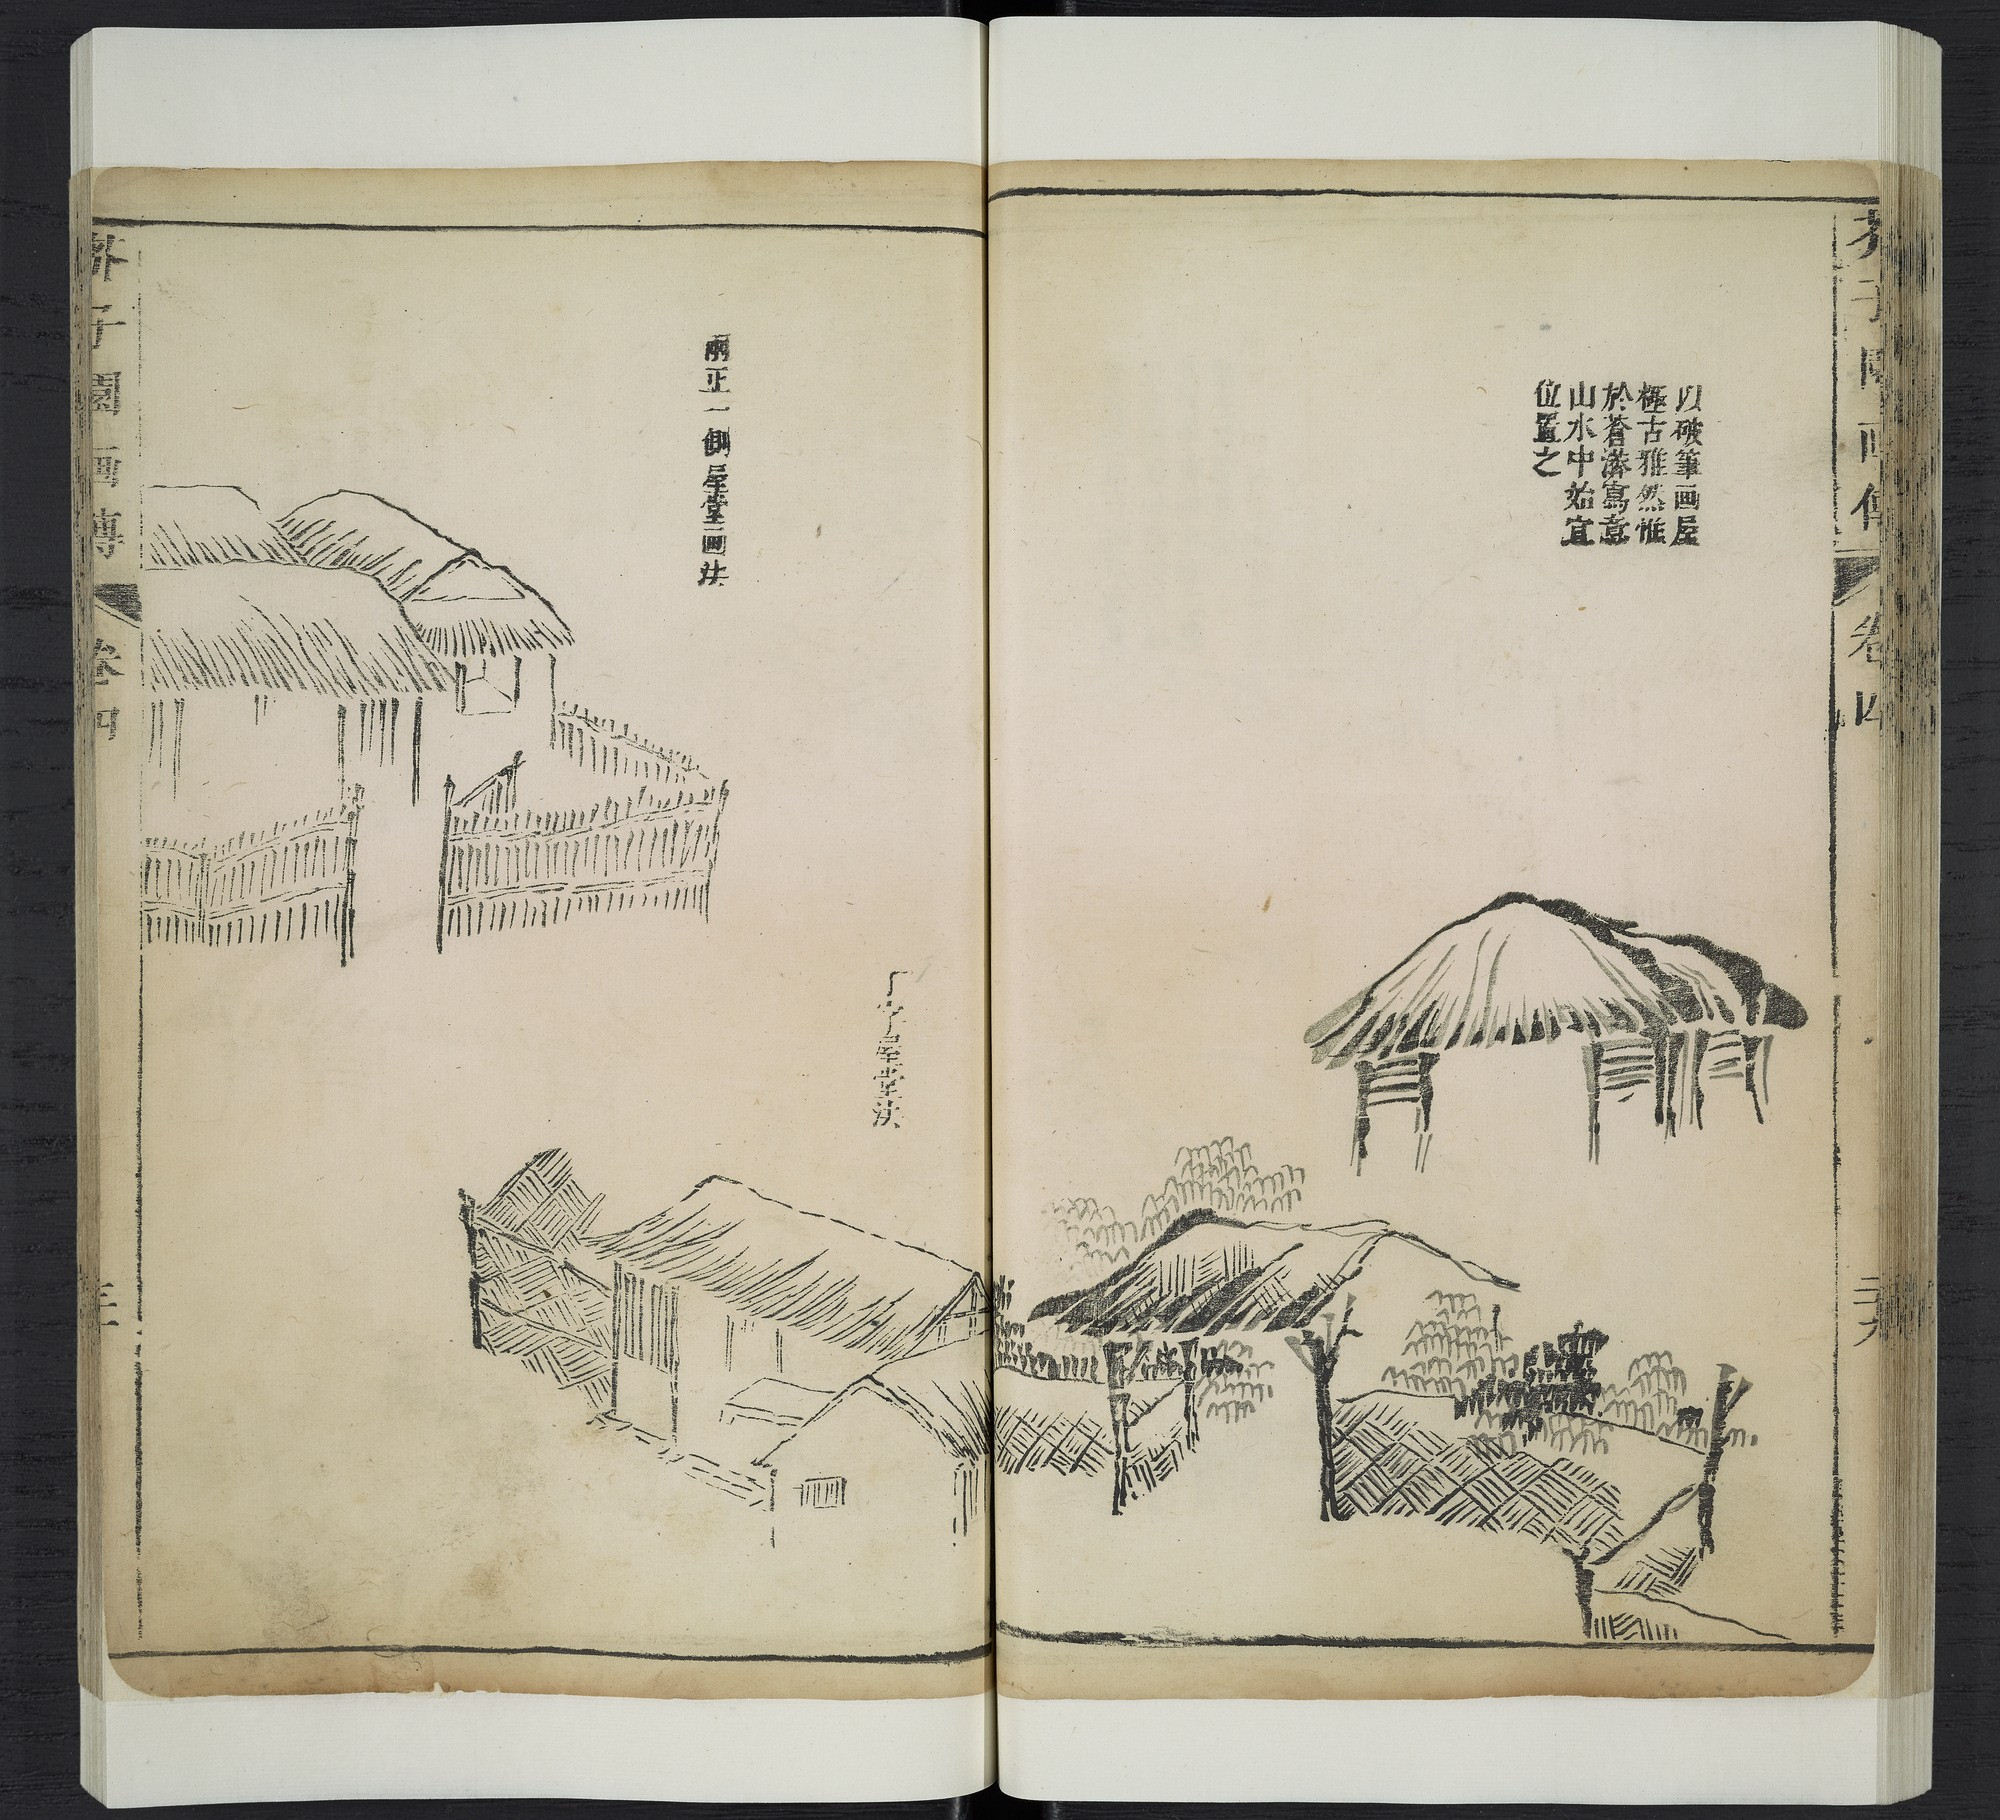 芥子園画傳
卷四
二十九
以破筆画屋
極古雅然惟
於蒼莽寫意
山水中始宜
位置之
兩正一側屋堂画法
丁字屋堂法
芥子園画傳
卷四
三十